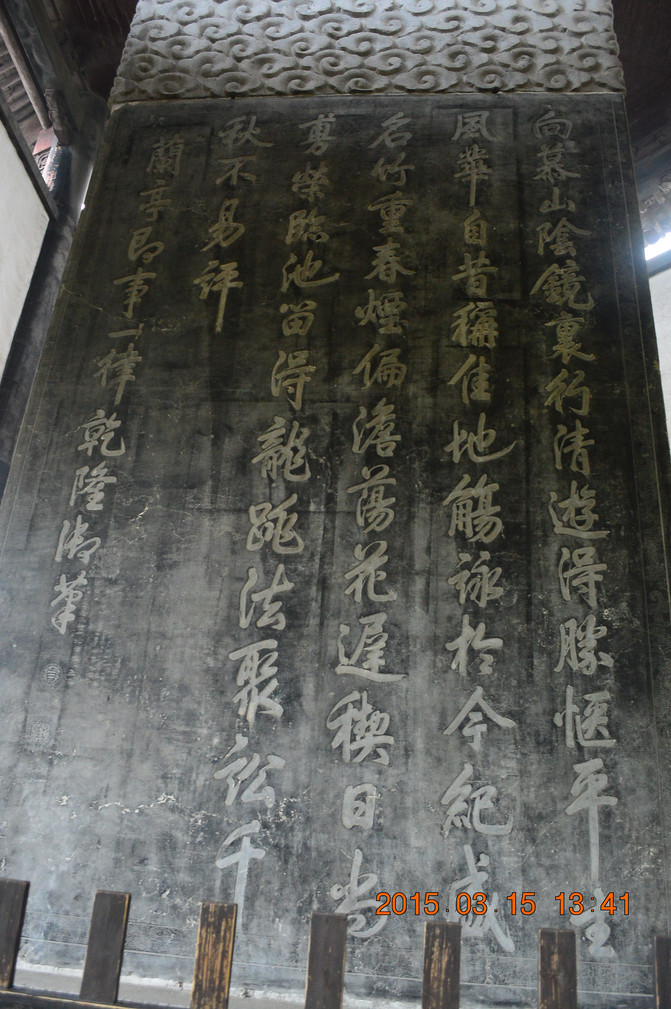 向慕山陰鏡裏行清遊得勝愜平生
風華自昔稱佳地觴詠於今紀盛
名竹重春煙偏澹蕩花遲禊日尚
旉榮臨池留得龍跳法聚訟千
秋不易評
蘭亭即事一律
乾隆御筆
2015.03.15 13:41